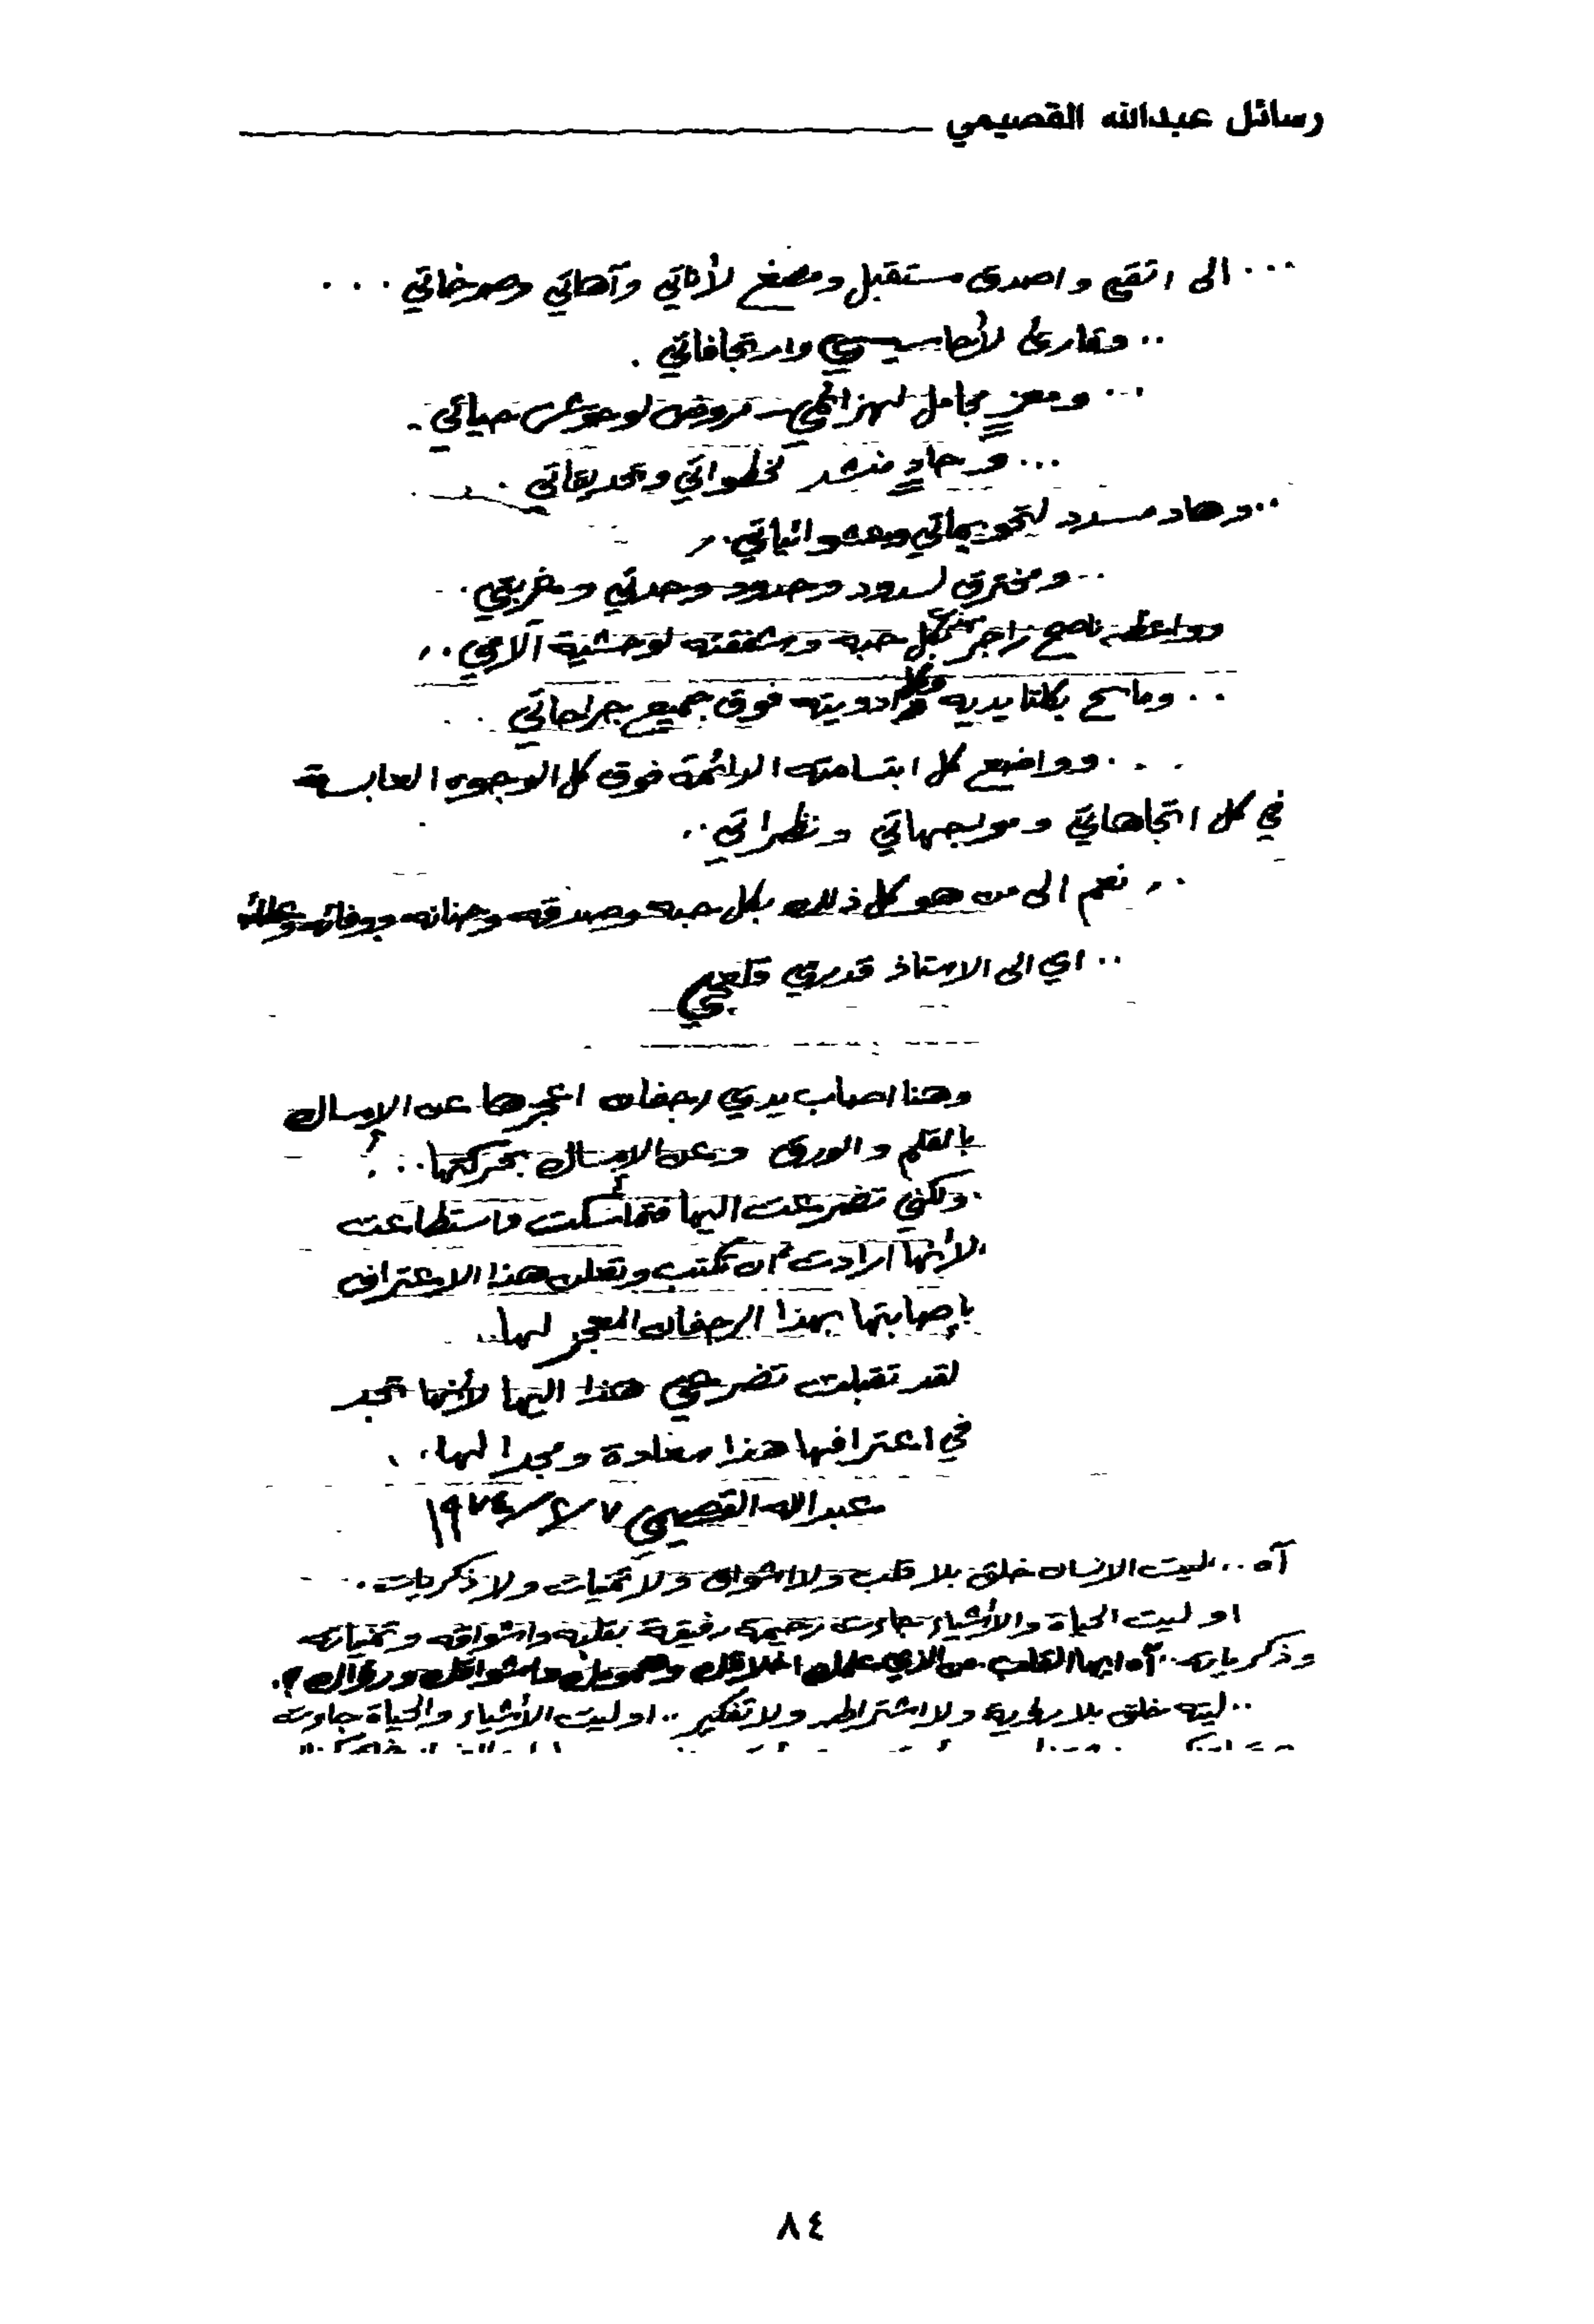 رسائل عبدالله القصيمي
... الى اتقى واصدق مستقبل ومصغ لأناتي وآهاتي وصرخاتي ...
.. وقارئ لأحاسيسي وارتجافاتي .
... ومعزٍ مجامل لهزائمي مروض لوحوش حياتي .
... وحادٍ منشد لخطواتي وتحديقاتي .
.. وهاد مسدد لتحويماتي وعشوائياتي ..
.. ومخترق لسدود وحدود وحدتي وغربتي .
وواعظ ناصح زاجر بكل حبه وشفقته لوحشية آلامي ..
.. وماسح بكلتا يديه وكل ادويته فوق جميع جراحاتي
... وواضع كل ابتسامته الدائمة فوق كل الوجوه العابسة
في كل اتجاهاتي ومواجهاتي ونظراتي ..
.. نعم الى من هو كل ذلك بكل حبه وصدقه وحنانه ووفائه
.. اي الى الاستاذ قدري قلعجي
وهنا اصاب يدي رجفان اعجزها عن الإمساك
بالقلم والورق وعن الامساك بحركتها ...
ولكني تضرعت اليها فتماسكت واستطاعت
لأنها ارادت أن تكتب وتعلن هذا الاعتراف
بإصابتها بهذا الرجفان المعجز لها ..
لقد تقبلت تضرعي هذا اليها لأنها تجد
في اعترافها هذا سعادة ومجدا لها ..
عبدالله القصيمي ٧/٤/١٩٧٤
آه .. ليت الانسان خلق بلا قلب ولا اشواق ولا تمنيات ولا ذكريات .
او ليت الحياة والأشياء جاءت رحيمة رفيقة بقلبه واشواقه وتمنياته
وذكرياته .. آه ايها القلب من الذي علمك اخلاقك وهمومك واشواقك ورؤاك ؟.
.. ليته خلق بلا رؤية ولا اشتراط ولا تفكير .. او ليت الأشياء والحياة جاءت
٨٤